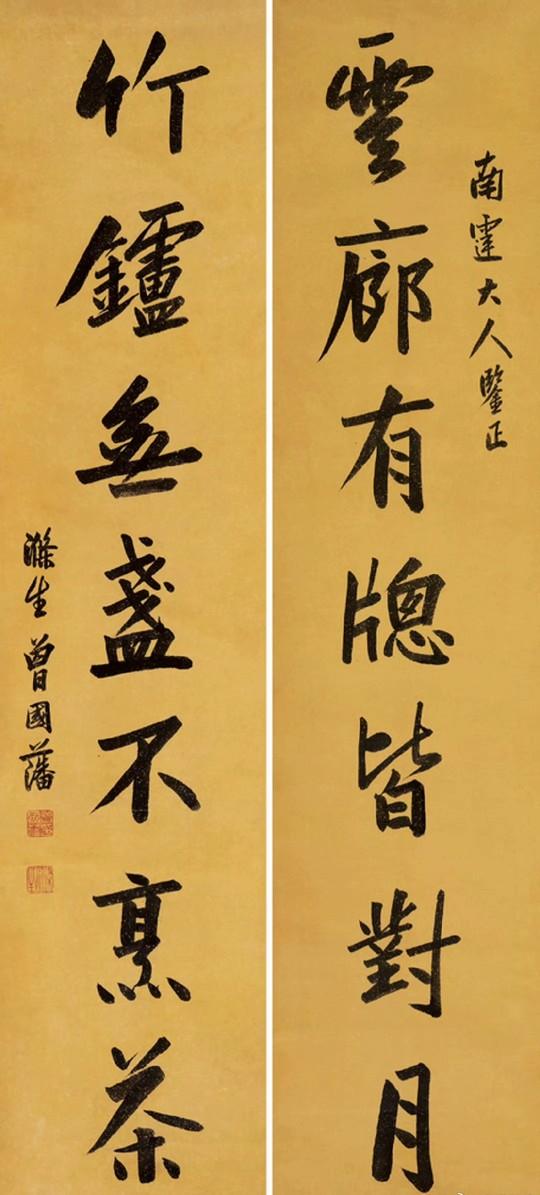 南霆大人鑒正
雲廊有牕皆對月
竹鑪無盞不烹茶
滌生曾國藩